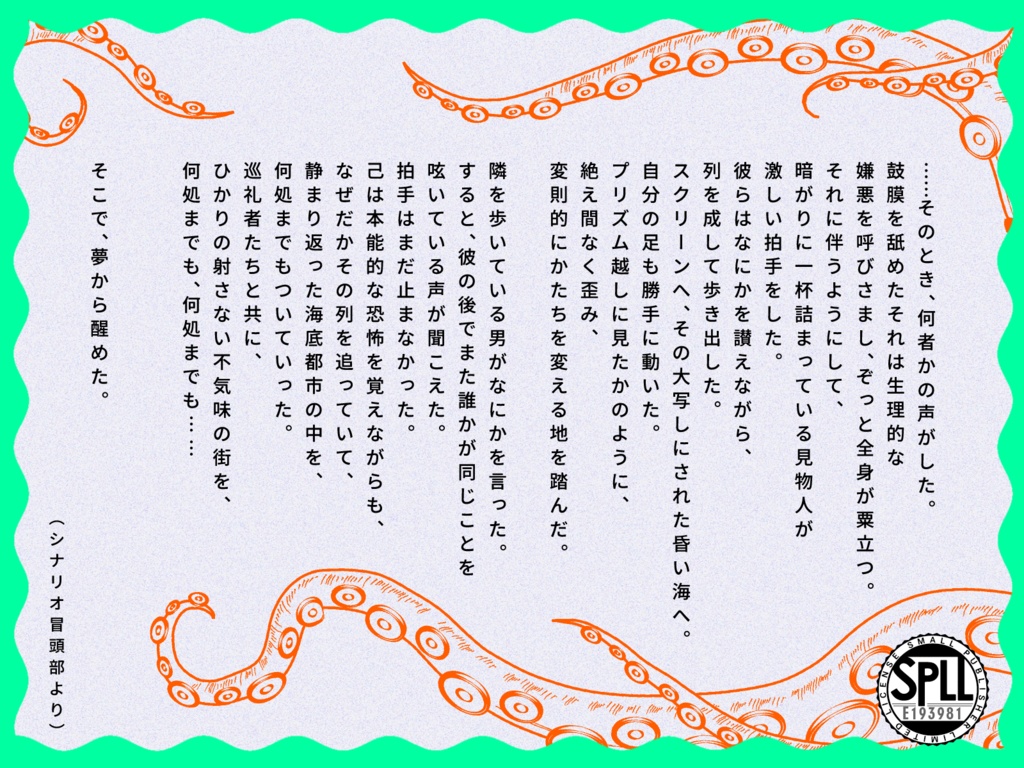 ……そのとき、何者かの声がした。
鼓膜を舐めたそれは生理的な
嫌悪を呼びさまし、ぞっと全身が粟立つ。
それに伴うようにして、
暗がりに一杯詰まっている見物人が
激しい拍手をした。
彼らはなにかを讃えながら、
列を成して歩き出した。
スクリーンへ、その大写しにされた昏い海へ。
自分の足も勝手に動いた。
プリズム越しに見たかのように、
絶え間なく歪み、
変則的にかたちを変える地を踏んだ。
隣を歩いている男がなにかを言った。
すると、彼の後でまた誰かが同じことを
呟いている声が聞こえた。
拍手はまだ止まなかった。
己は本能的な恐怖を覚えながらも、
なぜだかその列を追っていて、
静まり返った海底都市の中を、
何処までもついていった。
巡礼者たちと共に、
ひかりの射さない不気味の街を、
何処までも、何処までも……
そこで、夢から醒めた。
（シナリオ冒頭部より）
SMALL PUBLISHER LIMITED LICENSE
SPLL
E193981